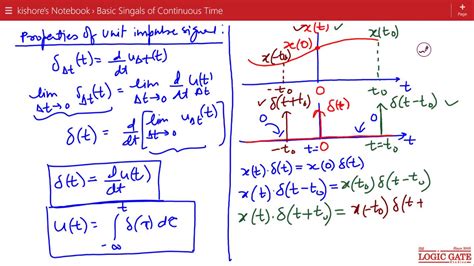 kishore's Notebook › Basic Singals of Continuous Time
Page
Properties of Unit impulse signal:
δΔt(t) = d/dt uΔt(t)
lim Δt→0 δΔt(t) = lim Δt→0 d/dt uΔt(t)
δ(t) = d/dt [lim Δt→0 uΔt(t)]
δ(t) = d u(t)/dt
u(t) = ∫_{-∞}^{t} δ(τ) dτ
x(t)
x(-t₀) x(0) x(t₀)
-t₀ 0 t₀ t
✓δ(t+t₀) ✓δ(t) δ(t-t₀)✓
0 0
-t₀ t=0 t=t₀ t
x(t)·δ(t) = x(0) δ(t)
x(t)·δ(t-t₀) = x(t₀) δ(t-t₀)
x(t)·δ(t+t₀) = x(-t₀) δ(t+
LOGIC GATE